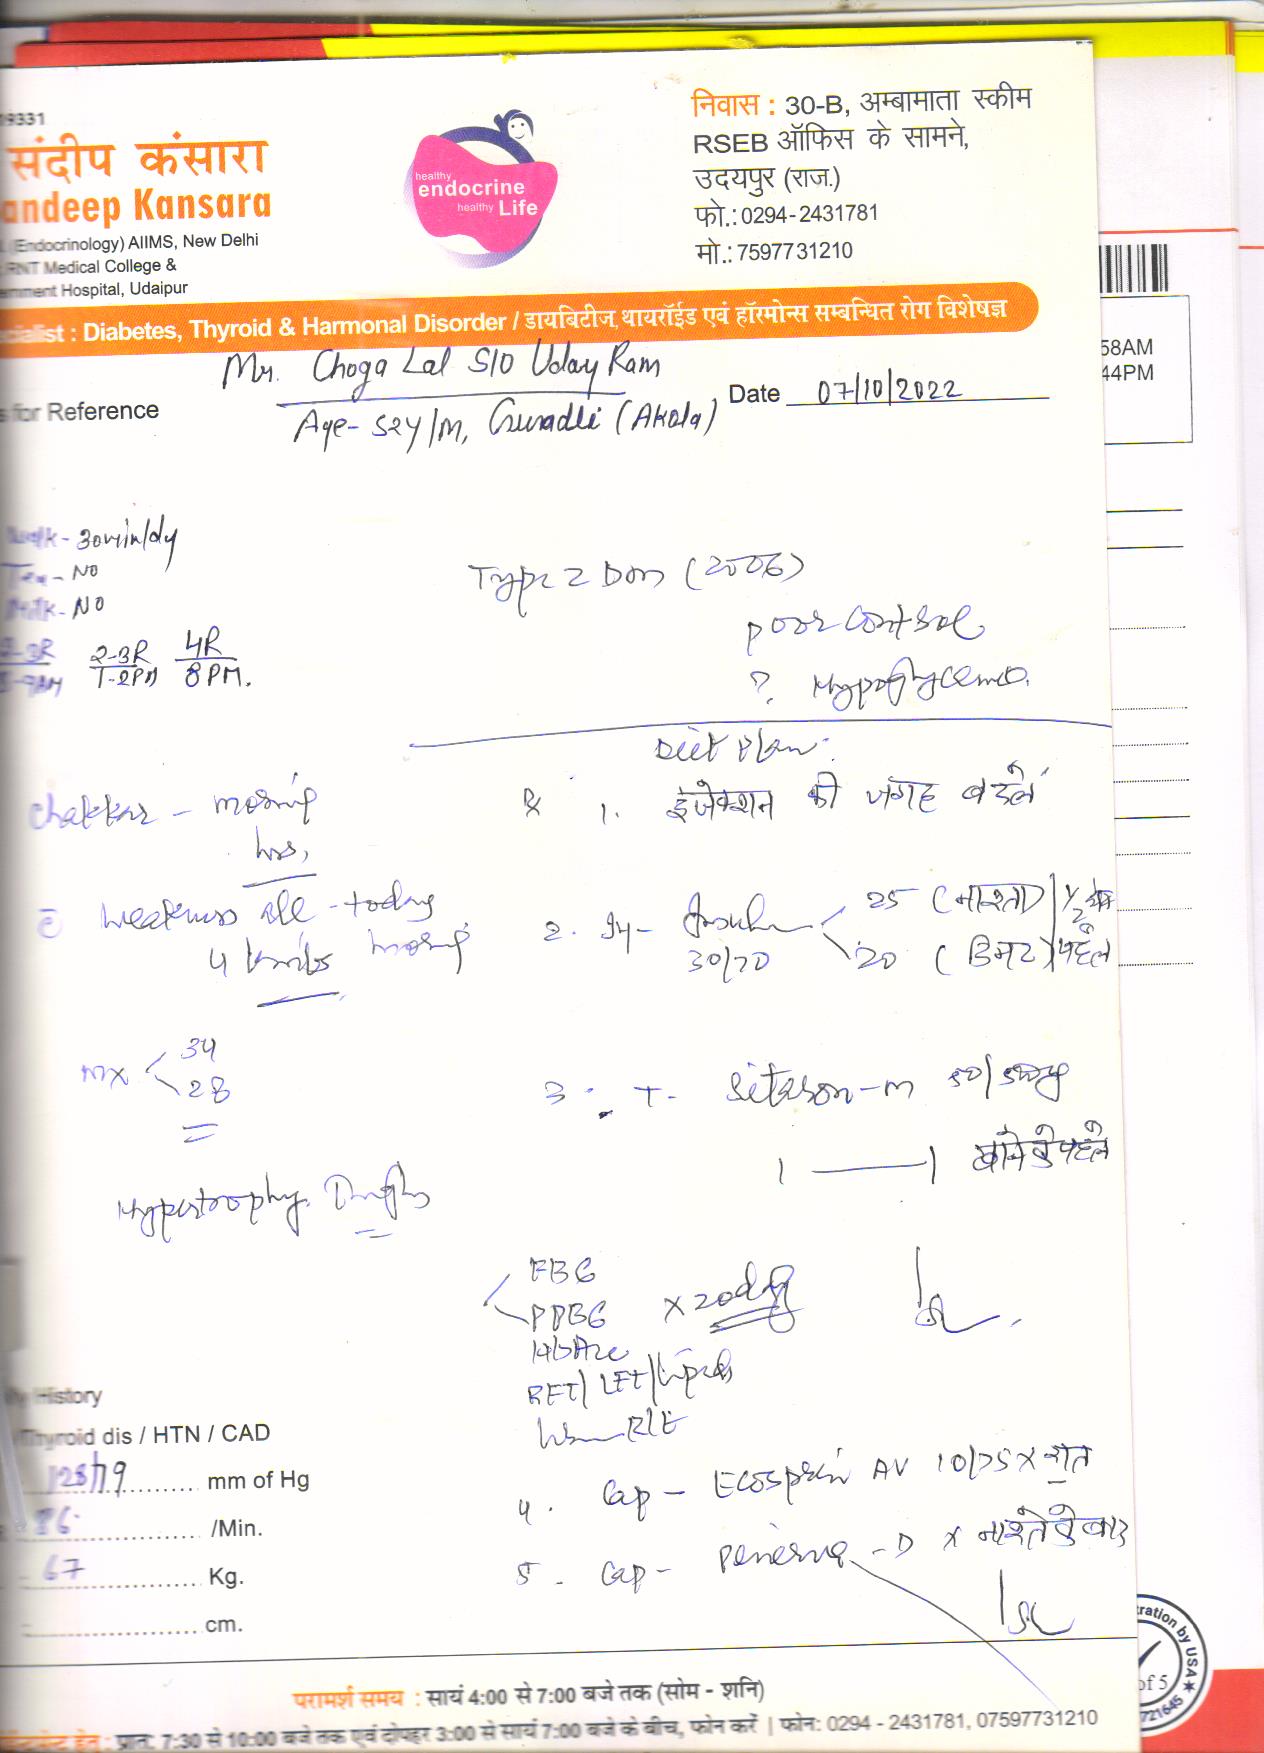 19331
संदीप कंसारा
andeep Kansara
(Endocrinology) AIIMS, New Delhi
RNT Medical College &
ernment Hospital, Udaipur
healthy
endocrine
healthy Life
निवास : 30-B, अम्बामाता स्कीम
RSEB ऑफिस के सामने,
उदयपुर (राज.)
फो.:0294-2431781
मो.:7597731210
cialist : Diabetes, Thyroid & Harmonal Disorder / डायबिटीज, थायरॉईड एवं हॉरमोन्स सम्बन्धित रोग विशेषज्ञ
Mr. Choga Lal S/O Uday Ram
s for Reference
Date 07/10/2022
Age- 52y/M, (Akola)
58AM
44PM
Walk - 30min/dy
Tea - NO
Milk - NO
2-3R 2-3R 4R
8-9AM 1-2PM 8PM.
Type 2 Dm (2006)
poor control
? Hypoglycemia
Diet Plan:
chakkar - morning
hrs,
Rx 1. इंजेक्शन की जगह बदलें
c̄ weakness all - today
4 units morning
2. Inj- Insulin 25 (नाश्ता) 1/2 घंटा
30/70 20 (डिनर) पहले
MX 34
28
3. T- Sitason-m 50/500mg
1 — 1 खाने के पहले
Hypertrophy. Thighs
FBG
PPBG x 20 day
HbA1c
RFT/LFT/Lipids
R/E
History
Thyroid dis / HTN / CAD
128/79 mm of Hg
86 /Min.
67 Kg.
cm.
4. Cap - Ecosprin AV 10/75 x रात
5. Cap - -D x नाश्ते के बाद
tration by USA ★
of 5
721645 ★
परामर्श समय : सायं 4:00 से 7:00 बजे तक (सोम - शनि)
हेतु : प्रात: 7:30 से 10:00 बजे तक एवं दोपहर 3:00 से सायं 7:00 बजे के बीच, फोन करें | फोन: 0294 - 2431781, 07597731210